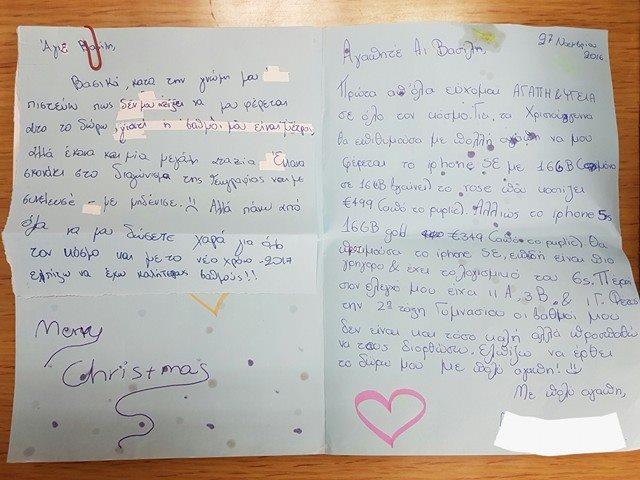 Άγιε Βασίλη,
Βασικά, κατά την γνώμη μου
πιστεύω πως δεν μου αξίζει να μου φέρεται
αυτο το δώρο, γιατί η βαθμοί μου είναι μέτριοι,
αλλά έκανα και μία μεγάλη αταξία Έκανα
σκονάκι στο διαγώνισμα της Γεωγραφίας και με
με μηδένισε. Αλλά πάνω από
όλα να μου δώσετε χαρά για όλο
τον κόσμο και με το νέο χρόνο -2017
ελπίζω να έχω καλήτερους βαθμούς!!
Merry
Christmas
Αγαπητέ Αι Βασίλη,
27 Νοεμβρίου
2016
Πρώτα απ' όλα εύχομαι ΑΓΑΠΗ & ΥΓΕΙΑ
σε όλο τον κόσμο. Για τα Χριστούγεννα
θα επιθυμούσα με πολλή αγάπη να μου
φέρεται το iphone SE με 16GB
σε 16GB βγαίνει) το rose που κοστίζει
€499 (από το public). Αλλιώς το iphone 5s
16GB gold €349 (από το public). Θα
προτιμούσα το iphone SE, επειδή είναι πιο
γρήγορο & έχει το λογισμικό του 6s. Πέρσι
στον έλεγχο μου είχα 11 Α, 3 Β, & 1 Γ. Φέτος
την 2α τάξη Γυμνασίου οι βαθμοί μου
δεν είναι και τόσο καλή αλλά προσπαθώ
να τους διορθώσω. Ελπίζω να έρθει
το δώρο μου με πολύ αγάπη!
Με πολύ αγάπη,